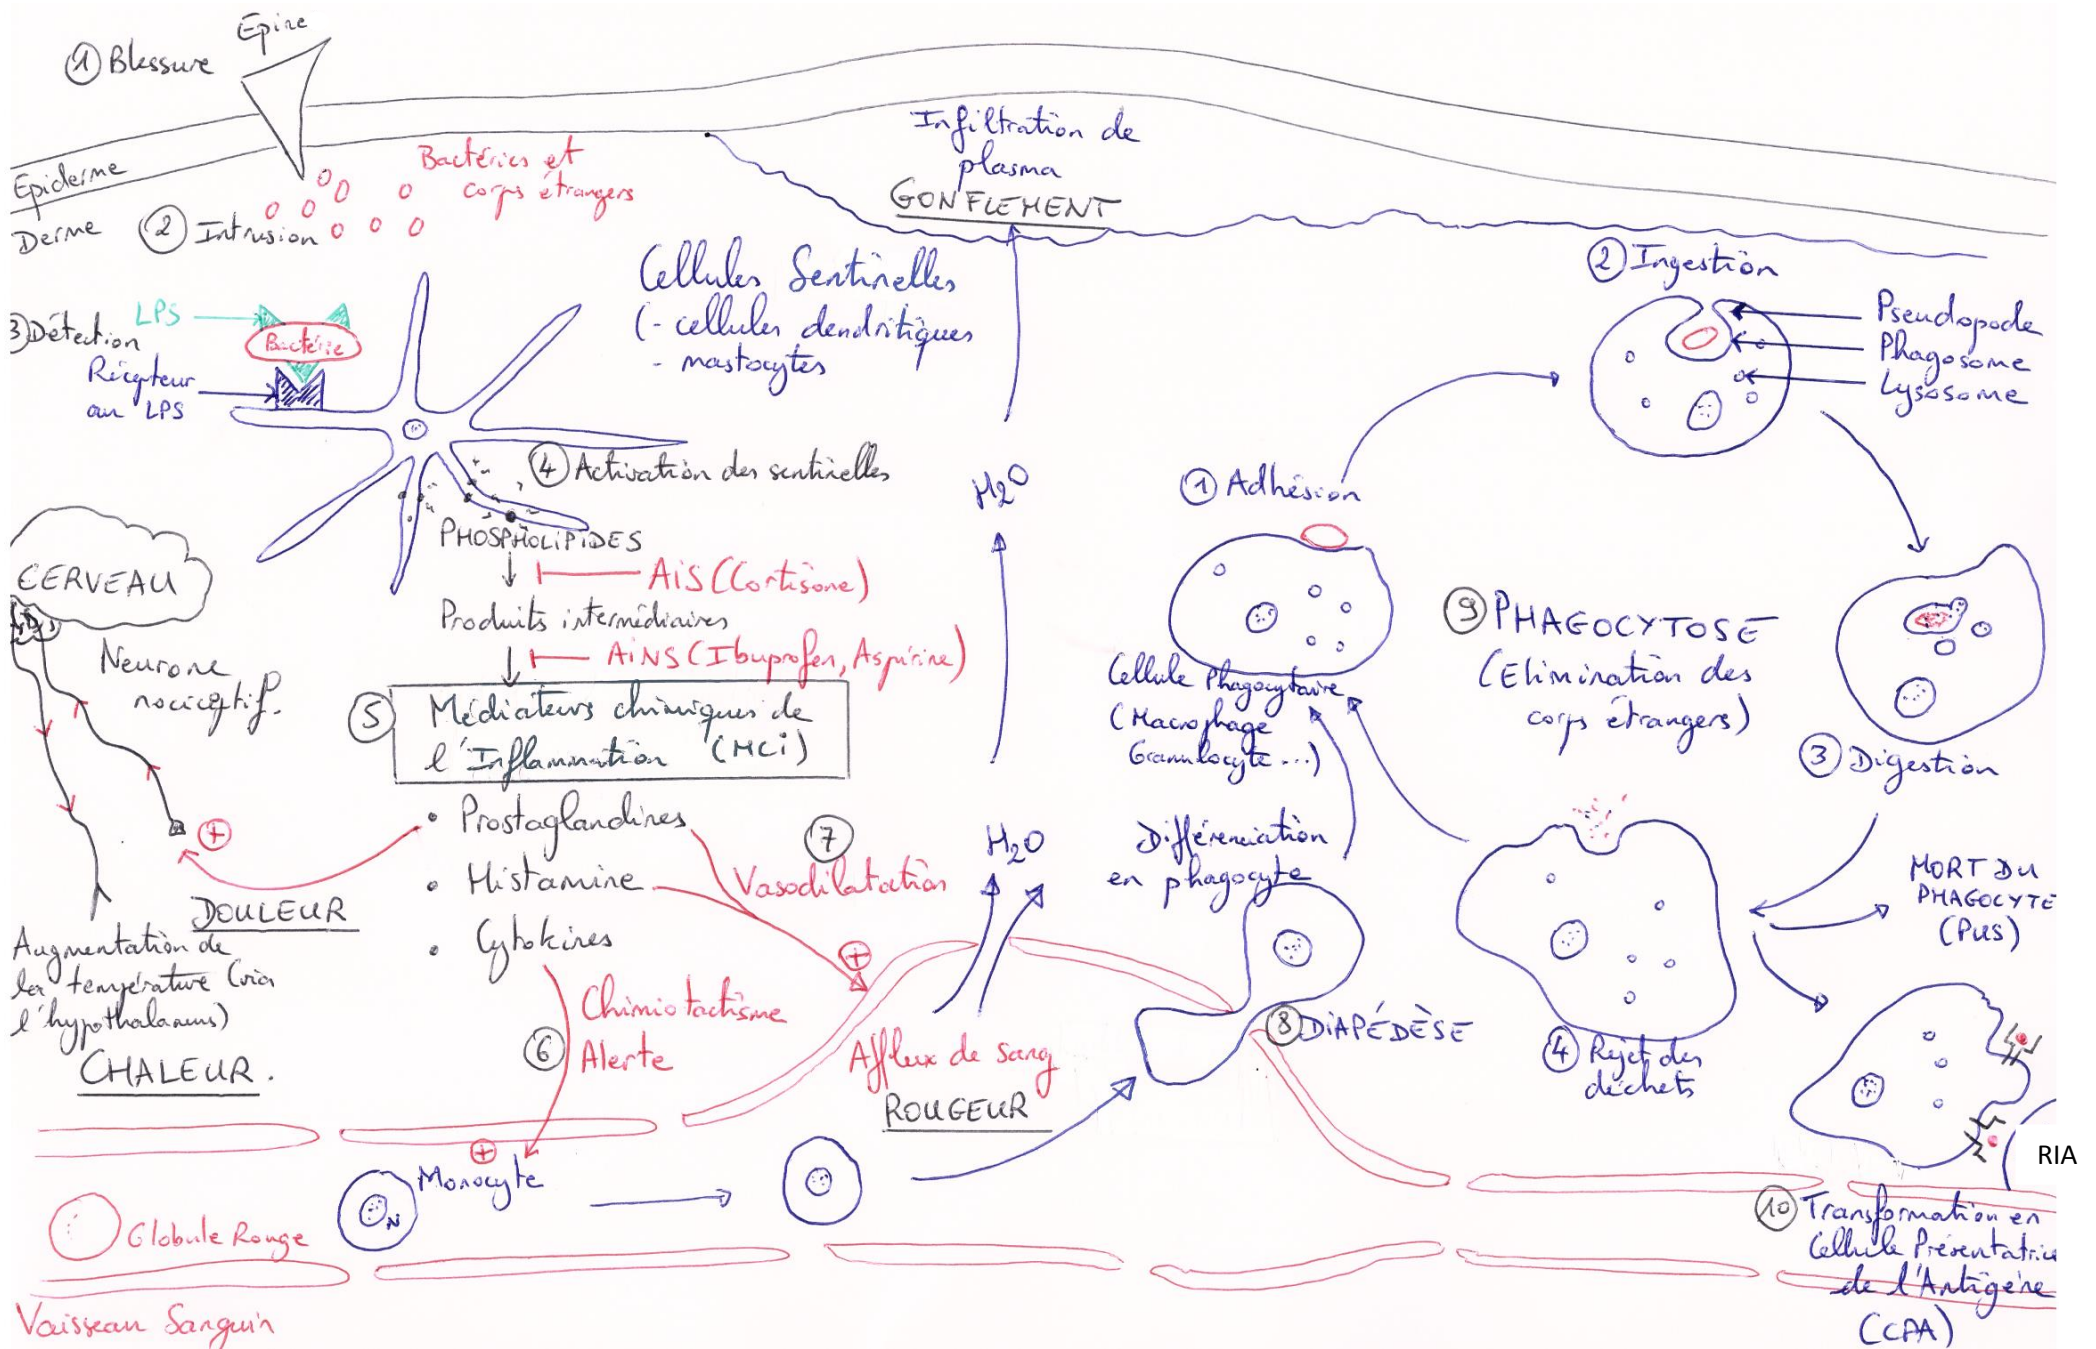 ① Blessure
Epine
Epiderme
Derme
② Intrusion
Bactéries et
corps étrangers
Infiltration de
plasma
GONFLEMENT
3) Détection
LPS
Bactérie
Récepteur
au LPS
Cellules Sentinelles
(- cellules dendritiques
- mastocytes
④ Activation des sentinelles
PHOSPHOLIPIDES
AiS (Cortisone)
Produits intermédiaires
AiNS (Ibuprofen, Aspirine)
⑤ Médiateurs chimiques de
l'Inflammation (MCi)
• Prostaglandines
• Histamine
• Cytokines
CERVEAU
Neurone
nociceptif.
+
DOULEUR
Augmentation de
la température (via
l'hypothalamus)
CHALEUR.
⑦
Vasodilatation
+
⑥
Chimiotactisme
Alerte
Afflux de sang
ROUGEUR
H2O
H2O
+
Monocyte
N
Globule Rouge
Vaisseau Sanguin
⑧ DIAPÉDÈSE
Différenciation
en phagocyte
Cellule Phagocytaire
(Macrophage
Granulocyte ...)
⑨ PHAGOCYTOSE
(Elimination des
corps étrangers)
① Adhésion
② Ingestion
Pseudopode
Phagosome
Lysosome
③ Digestion
④ Rejet des
déchets
MORT DU
PHAGOCYTE
(PUS)
RIA
⑩ Transformation en
Cellule Présentatrice
de l'Antigène
(CPA)